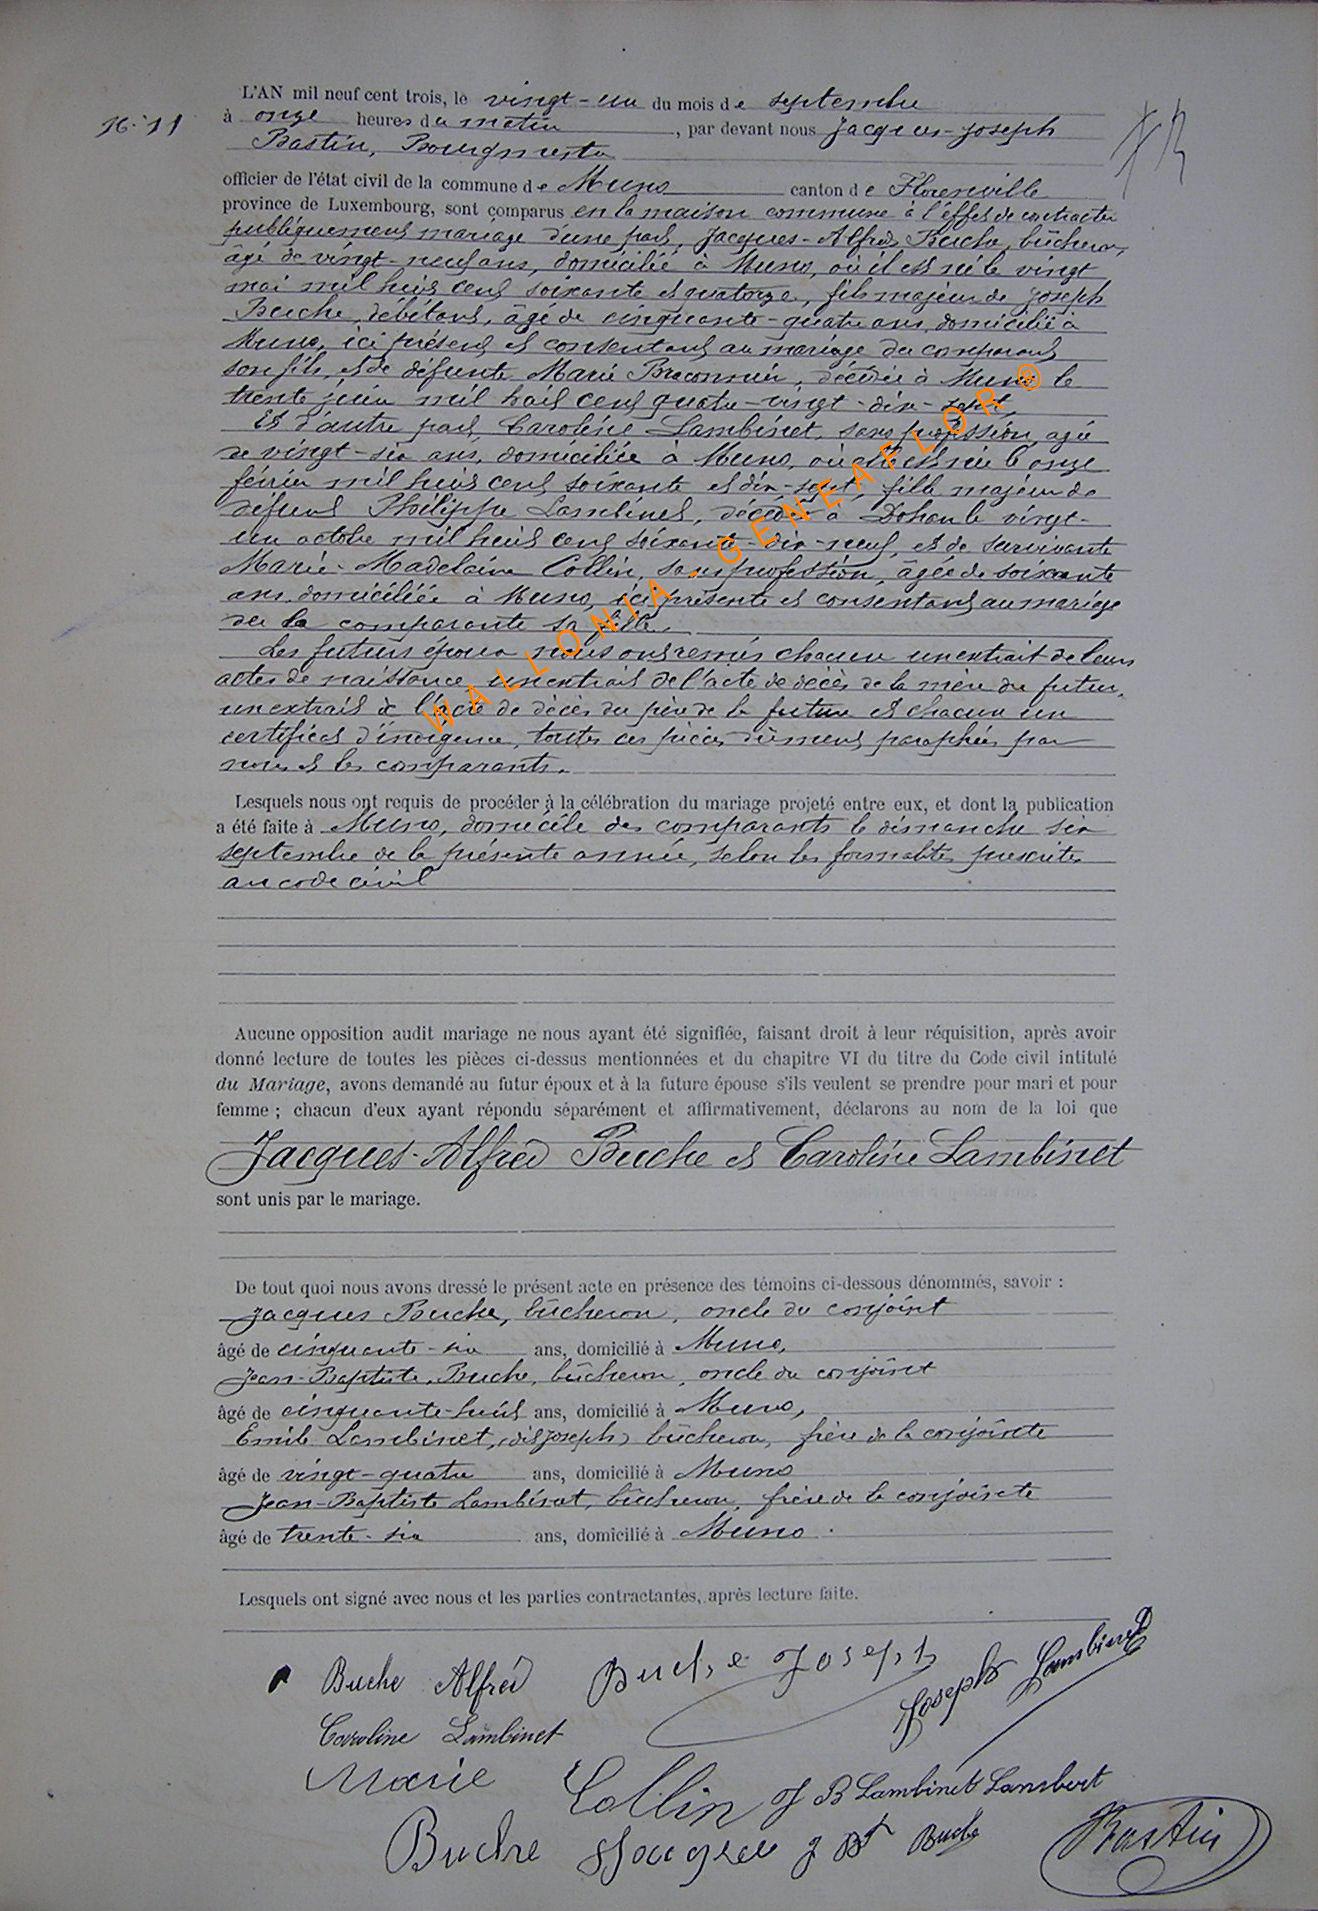 L'AN mil neuf cent trois, le vingt-un du mois de septembre
16.11
à onze heures du matin, par devant nous Jacques-Joseph
Bastin, Bourgmestre
officier de l'état civil de la commune de Muno canton de Florenville
province de Luxembourg, sont comparus en la maison commune à l'effet de contracter
publiquement mariage d'une part, Jacques-Alfred Buche, bûcheron,
âgé de vingt-neuf ans, domicilié à Muno, où il est né le vingt
mai mil huit cent soixante et quatorze, fils majeur de Joseph
Buche, débitant, âgé de cinquante-quatre ans, domicilié à
Muno, ici présent et consentant au mariage du comparant
son fils, et de défunte Marie Braconnier, décédée à Muno le
trente juin mil huit cent quatre-vingt-dix-sept.
Et d'autre part, Caroline Lambinet, sans profession, agée
de vingt-six ans, domiciliée à Muno, où elle est née le onze
février mil huit cent soixante et dix-sept, fille majeure de
défunt Philippe Lambinet, décédé à Dohan le vingt-
un octobre mil huit cent soixante-dix-neuf, et de survivante
Marie-Madelaine Collin, sans profession, âgée de soixante
ans, domiciliée à Muno, ici présente et consentant au mariage
de la comparante sa fille.
Les futurs époux nous ont remis chacun un extrait de leurs
actes de naissance, un extrait de l'acte de décès de la mère du futur,
un extrait de l'acte de décès du père de la future et chacun un
certificat d'indigence, toutes ces pièces dûment paraphées par
nous et les comparants.
Lesquels nous ont requis de procéder à la célébration du mariage projeté entre eux, et dont la publication
a été faite à Muno, domicile des comparants le dimanche six
septembre de la présente année, selon les formalités prescrites
au code civil
Aucune opposition audit mariage ne nous ayant été signifiée, faisant droit à leur réquisition, après avoir
donné lecture de toutes les pièces ci-dessus mentionnées et du chapitre VI du titre du Code civil intitulé
du Mariage, avons demandé au futur époux et à la future épouse s'ils veulent se prendre pour mari et pour
femme ; chacun d'eux ayant répondu séparément et affirmativement, déclarons au nom de la loi que
Jacques-Alfred Buche et Caroline Lambinet
sont unis par le mariage.
De tout quoi nous avons dressé le présent acte en présence des témoins ci-dessous dénommés, savoir :
Jacques Buche, bûcheron, oncle du conjoint
âgé de cinquante-six ans, domicilié à Muno,
Jean-Baptiste Buche, bûcheron, oncle du conjoint
âgé de cinquante-huit ans, domicilié à Muno,
Emile Lambinet, (dit Joseph) bûcheron, frère de la conjointe
âgé de vingt-quatre ans, domicilié à Muno
Jean-Baptiste Lambinet, bûcheron, frère de la conjointe
âgé de trente-six ans, domicilié à Muno.
Lesquels ont signé avec nous et les parties contractantes, après lecture faite.
Buche Alfred Buche Joseph Joseph Lambinet
Caroline Lambinet
Marie Collin J B Lambinet Lambert
Buche Jacques J Bt Buche Bastin
WALLONIA.GENEAFLOR®